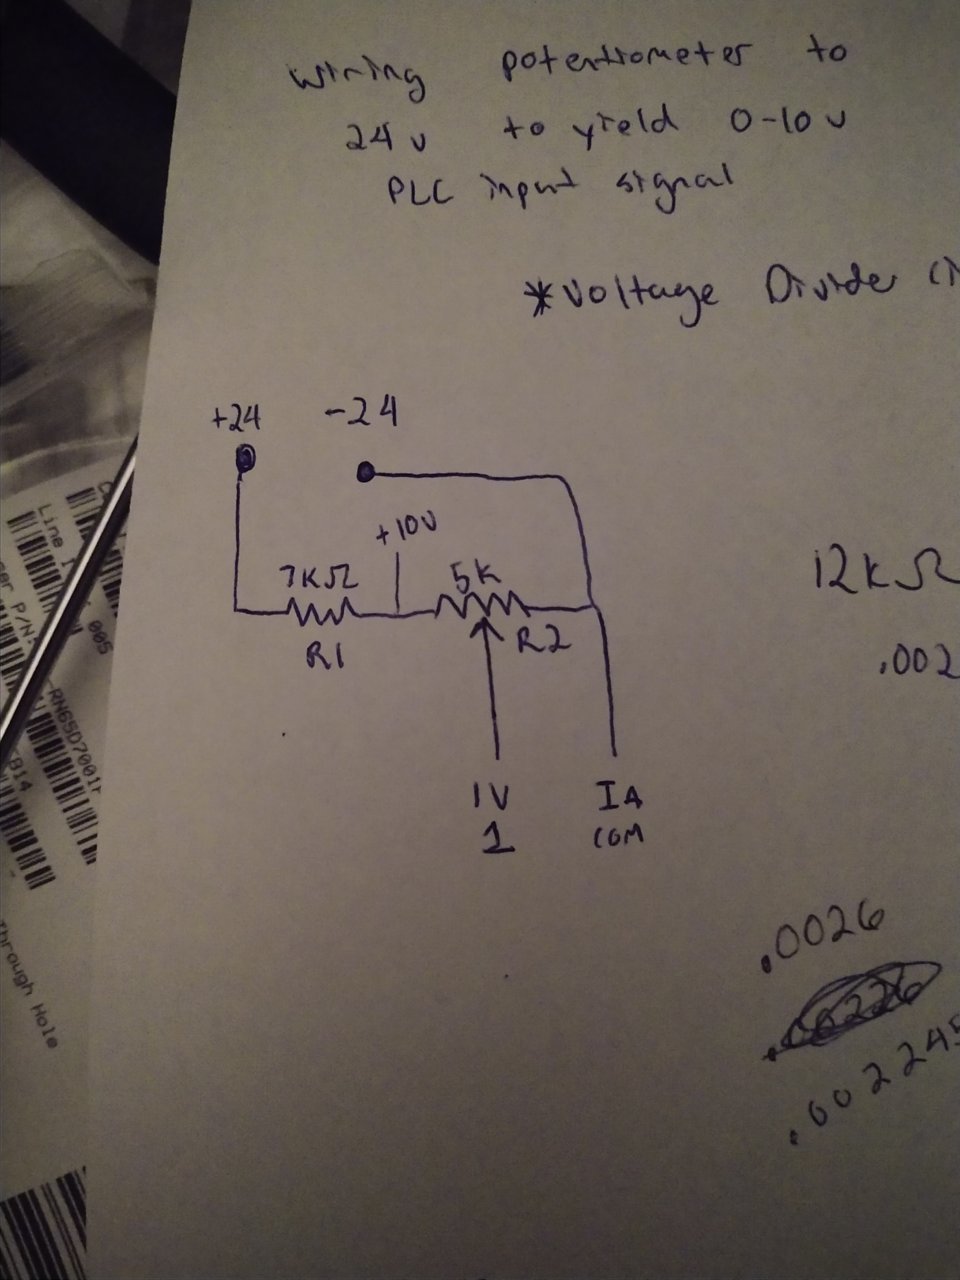 wiring potentiometer to
24 v to yield 0-10 v
PLC input signal
*Voltage Divider
+24 -24
+10V
7KΩ 5K
R1 R2
12KΩ
.002
IV IA
1 COM
.0026
.002245
Line I 005
P/N:
-RN65D7001F
B14
Through Hole